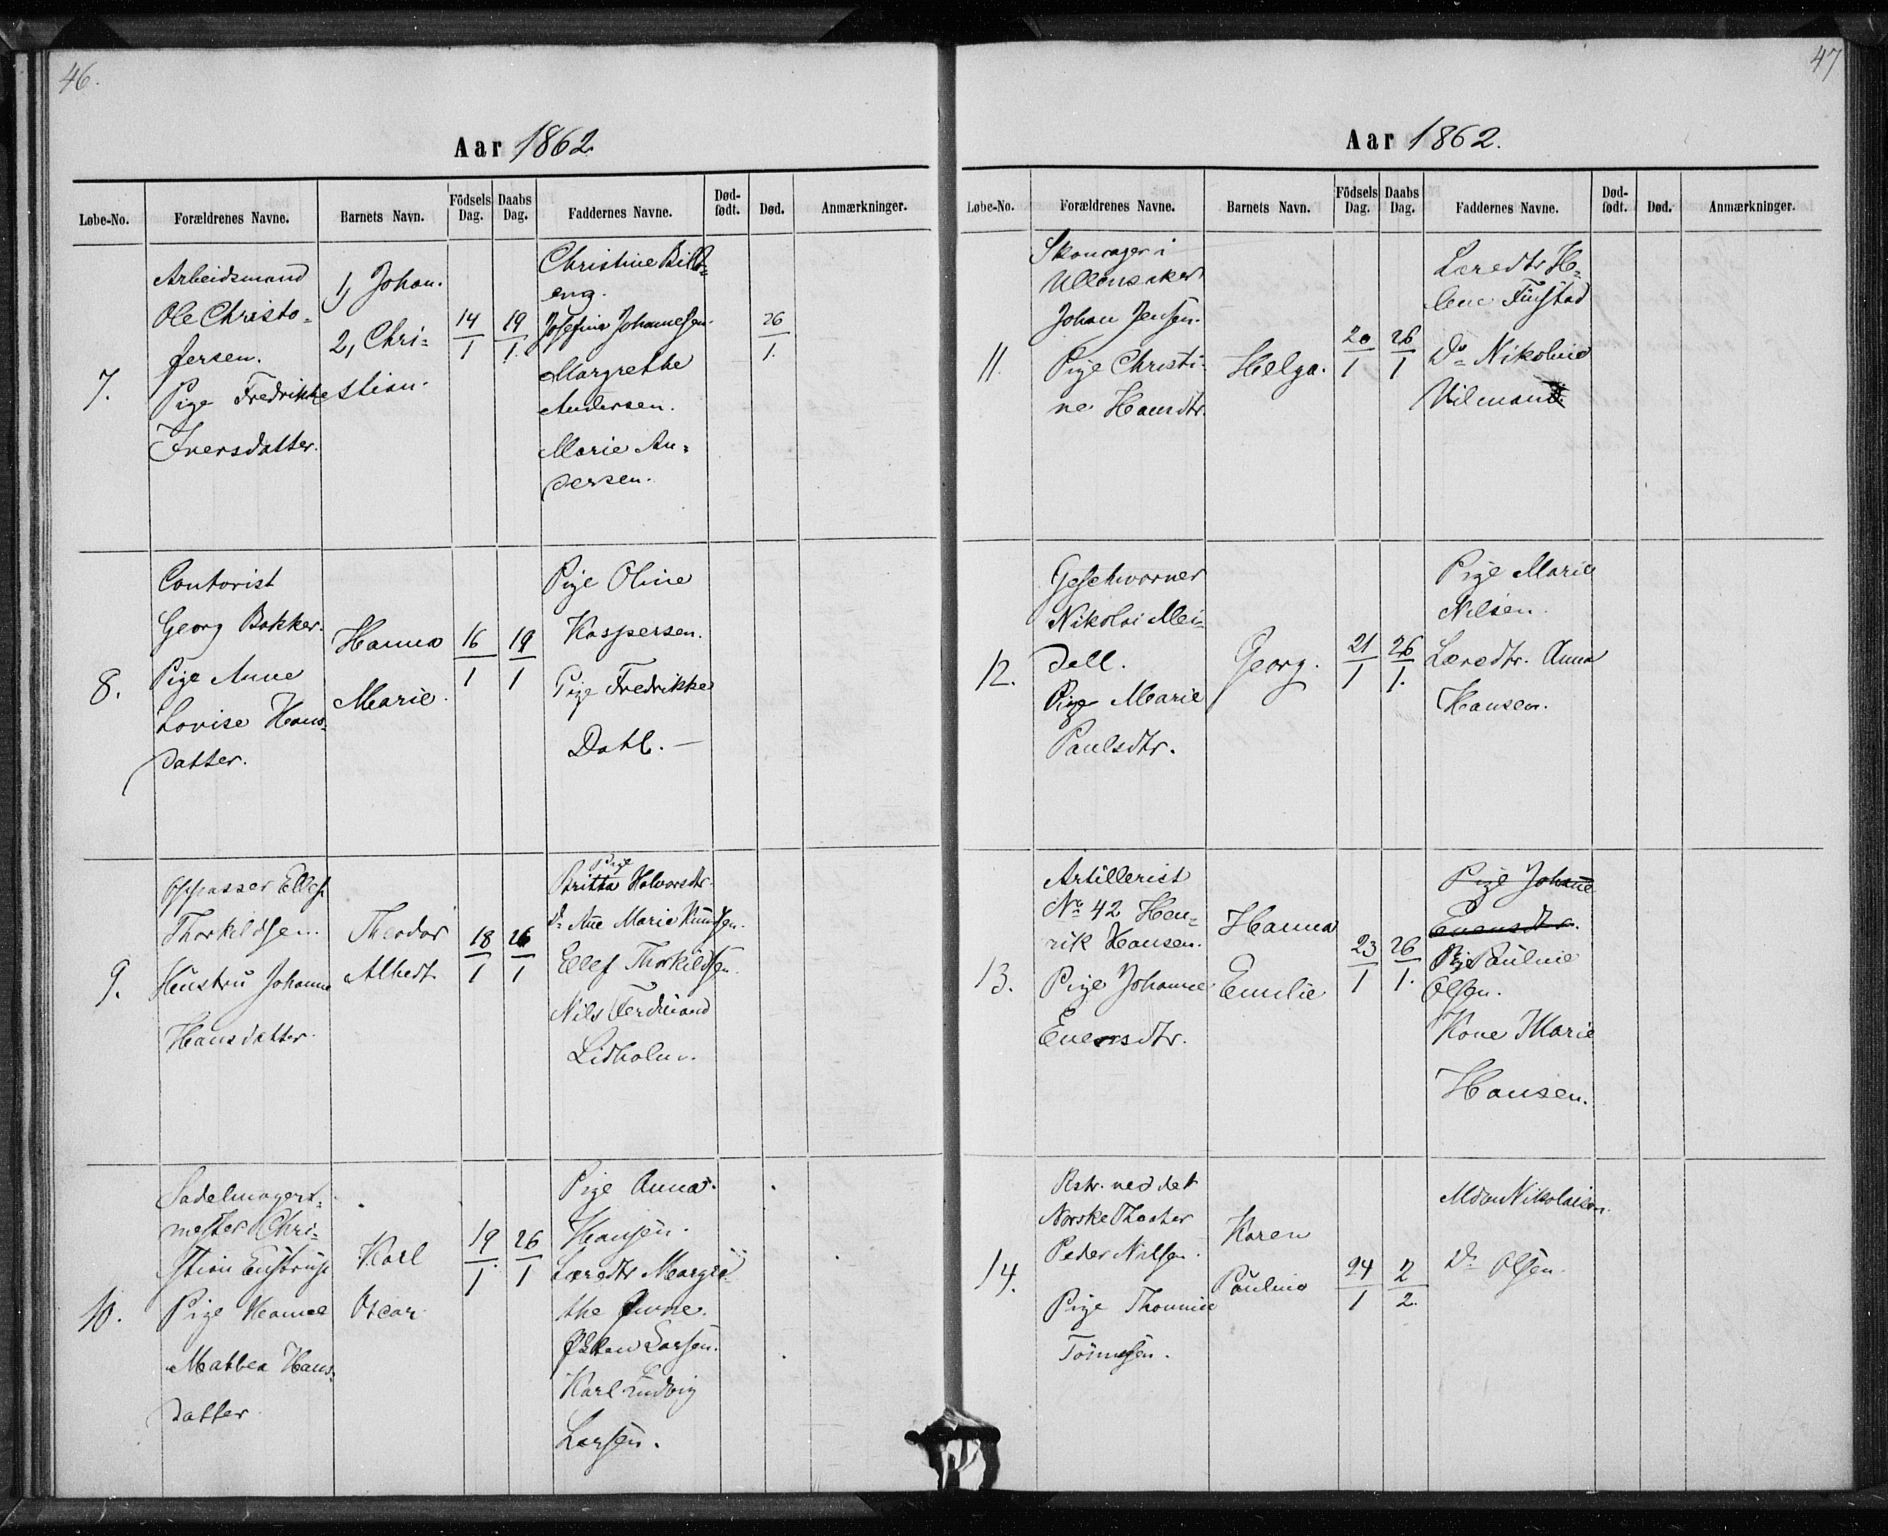 46.
Aar 1862
Løbe-No. Forældrenes Navne. Barnets Navn. Födsels Dag. Daabs Dag. Faddernes Navne. Død-født. Død. Anmærkninger.
7.
Arbeidsmand
Ole Christo-
fersen.
Pige Fredrikke
Iversdatter.
1, Johan.
2, Chri-
stian.
14/1
19/1.
Christine Bill-
eng.
Josefine Johannesen.
Margrethe
Andersen.
Marie An-
dersen.
26/1.
8.
Contorist
Georg Bakker.
Pige Anne
Lovise Hans-
datter.
Hanna
Marie.
16/1
19/1
Pige Oline
Kaspersen.
Pige Fredrikke
Dahl. —
9.
Oppasser Ellef
Thorkildsen.
Hustru Johanne
Hansdatter.
Theodor
Albert
18/1
26/1
Pige
Britta Halvorsdtr.
Do Ane Marie Knudsen.
Ellef Thorkildsen.
Nils Ferdinand
Lidholm.
10.
Sadelmager-
mester Chri-
stian
Pige Hanne
Mathea Hans-
datter
Karl
Oscar
19/1.
26/1
Pige Anna
Hansen.
Læredtr Margre-
the
Larsen.
Karl Ludvig
Larsen.
47
Aar 1862.
Løbe-No. Forældrenes Navne. Barnets Navn. Födsels Dag. Daabs Dag. Faddernes Navne. Død-født. Død. Anmærkninger.
11.
Skovrager i
Ullensaker
Johan Jensen.
Pige Christi-
ne Hansdtr.
Helga.
20/1
26/1
Læredtr He-
lene Finstad
Do Nikoline
Vilmand
12.
Geschworner
Nikolai Mei-
dell.
Pige Marie
Paulsdtr.
Georg.
21/1
26/1.
Pige Marie
Nilsen.
Læredtr. Anna
Hansen.
13.
Artillerist
No 42 Hen-
rik Hansen.
Pige Johanne
Evensdtr.
Hanna
Emilie
23/1
26/1.
Pige Johanne
Evensdtr.
Pige Pauline
Olsen.
Kone Marie
Hansen.
14.
Rstr. ved det
Norske Theater
Peder Nilsen.
Pige Thomine
Tönnesen.
Karen
Pauline
24/1
2/2.
Mdm Nikolaisen.
Do Olsen.